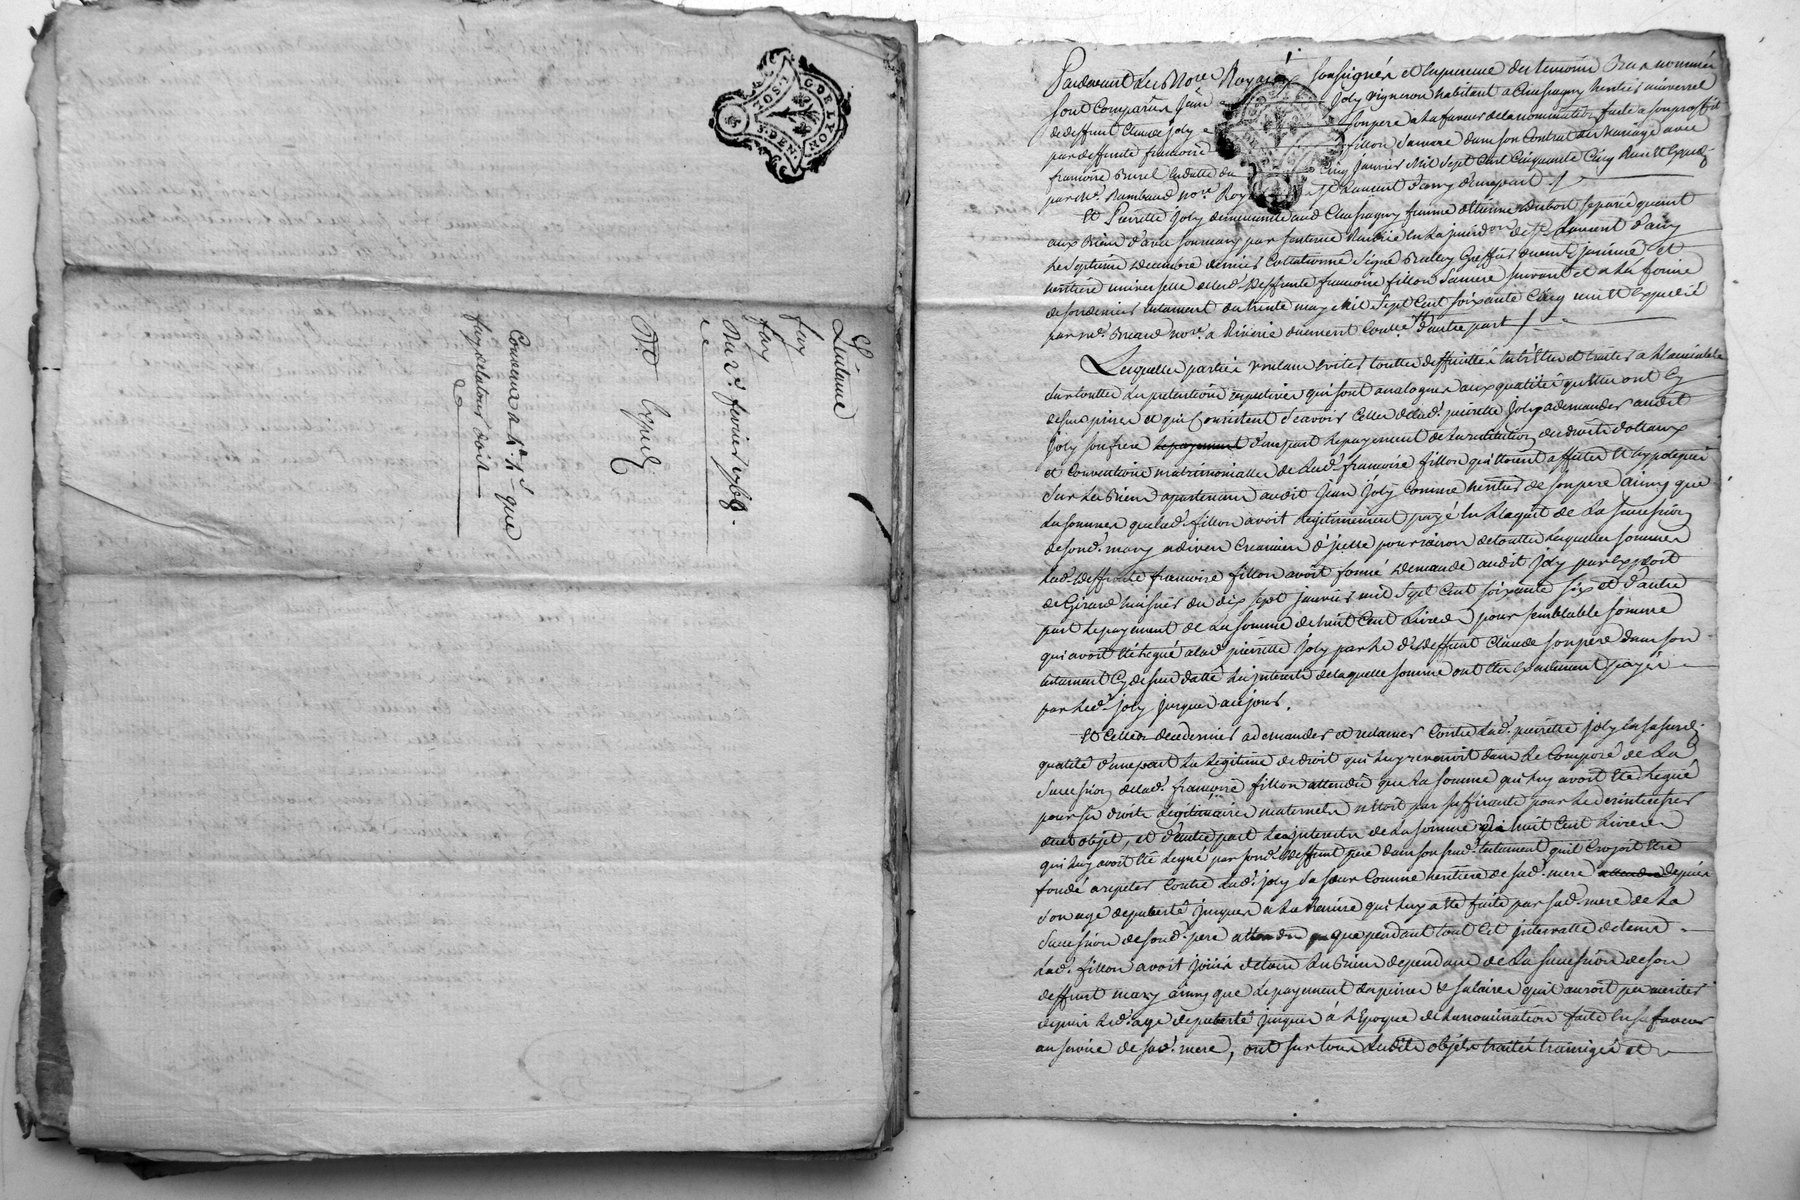 G. DE LYON
2. SOLS
8. DEN.
Quittance
fay
fay
Du 2e. fevrier 1768.
Expedié
Controllé
que
fay doit
Pardevant Les Nore. Royaux soussignés et En presence des temoins Bas nommés
sont Comparus Jean Joly vigneron habitant a Chassagny heritier universel
de deffunt Claude Joly son pere a La faveur de la nomination faite a son proffit
par deffunte francoise fillon sa mere dans son Contrat de Mariage avec
francoise Burel En datte du Cinq Janvier Mil Sept Cent Cinquante Cinq Receu et Expedié
par Me. Rambaud Nore. Royal a St. Laurent d'agny d'une part
Et Pierrette Joly demeurante aud. Chassagny femme d'Etienne Dubost separée quant
aux Biens d'avec son mary par sentence Rendüe En La jurisdon. de St. Laurent d'agny
Le Septieme decembre dernier Collationné Signé Greffier duement et
heritiere universelle de lad. deffunte francoise fillon sa mere suivant et a la forme
de son dernier testament du trente may Mil Sept Cent soixante Cinq receu et Expedié
par Me. Nore. a Riverie duement Contrôllé d'autre part
Lesquelles parties voulant Eviter toutes difficultés Entr'Elles et traiter a L'amiable
sur toutes Les pretentions respectives qui sont analogues aux qualités qu'Elles ont Cy
dessus prises et qui Consistent Scavoir Celles de lad. pierrette Joly a demander audit
Joly son frere le payement d'une part Le payement de La restitution des droits dotaux
et Conventions matrimonialles de Lad. francoise fillon qui Etoient affectés et hypotequés
Sur Les Biens apartenant audit Jean Joly Comme heritier de son pere ainsy que
Les sommes que lad. fillon avoit legitimement payé En L'acquit de La succession
de sond. mary a divers Creanciers d'icelle pour raison de toutes Lesquelles sommes
Lad. deffunte francoise fillon avoit formé demande audit Joly par Exploit
de Girard huissier du dix sept janvier mil Sept Cent soixante six et d'autre
part Le payement de La somme de huit Cent Livres pour semblable somme
qui avoit Eté Legué a lad. pierrette Joly par Le dt. deffunt Claude son pere dans son
testament Cy dessus datté Les interets de laquelle somme ont Eté Exactement payés
par Led. joly jusques au jours.
Et Celles de ce dernier a demander et reclamer Contre Lad. pierrette joly En sa susd.
qualité d'une part La Legitime de droit qui Luy revenoit dans Le Composé de La
Succession de lad. francoise fillon attendû que La somme qui Luy avoit Eté Legué
pour ses droits Legitimaires maternels n'Etoit pas suffisante pour Le desinteresser
a cet objet, et d'autre part Les interets de La somme de huit Cent Livres
qui Luy avoit Eté Legué par sond. deffunt pere dans son susd. testament qu'il Croyoit Etre
fondé a repeter Contre Lad. joly Sa sœur Comme heritiere de sad. mere attendu depuis
Son age de puberté jusques a La Remise qui Luy a Eté faite par sad. mere de La
Succession de sond. pere attendu que pendant tout Cet intervalle de tems
Lad. fillon avoit jouis de tous Les Biens dependans de La succession de son
deffunt mary ainsy que Le payement des peines & salaires qu'il auroit peu meriter
depuis Led. age de puberté jusques à L'Epoque de La nomination faite En sa faveur
au service de sad. mere, ont sur tous Lesdits objets traités transigés et